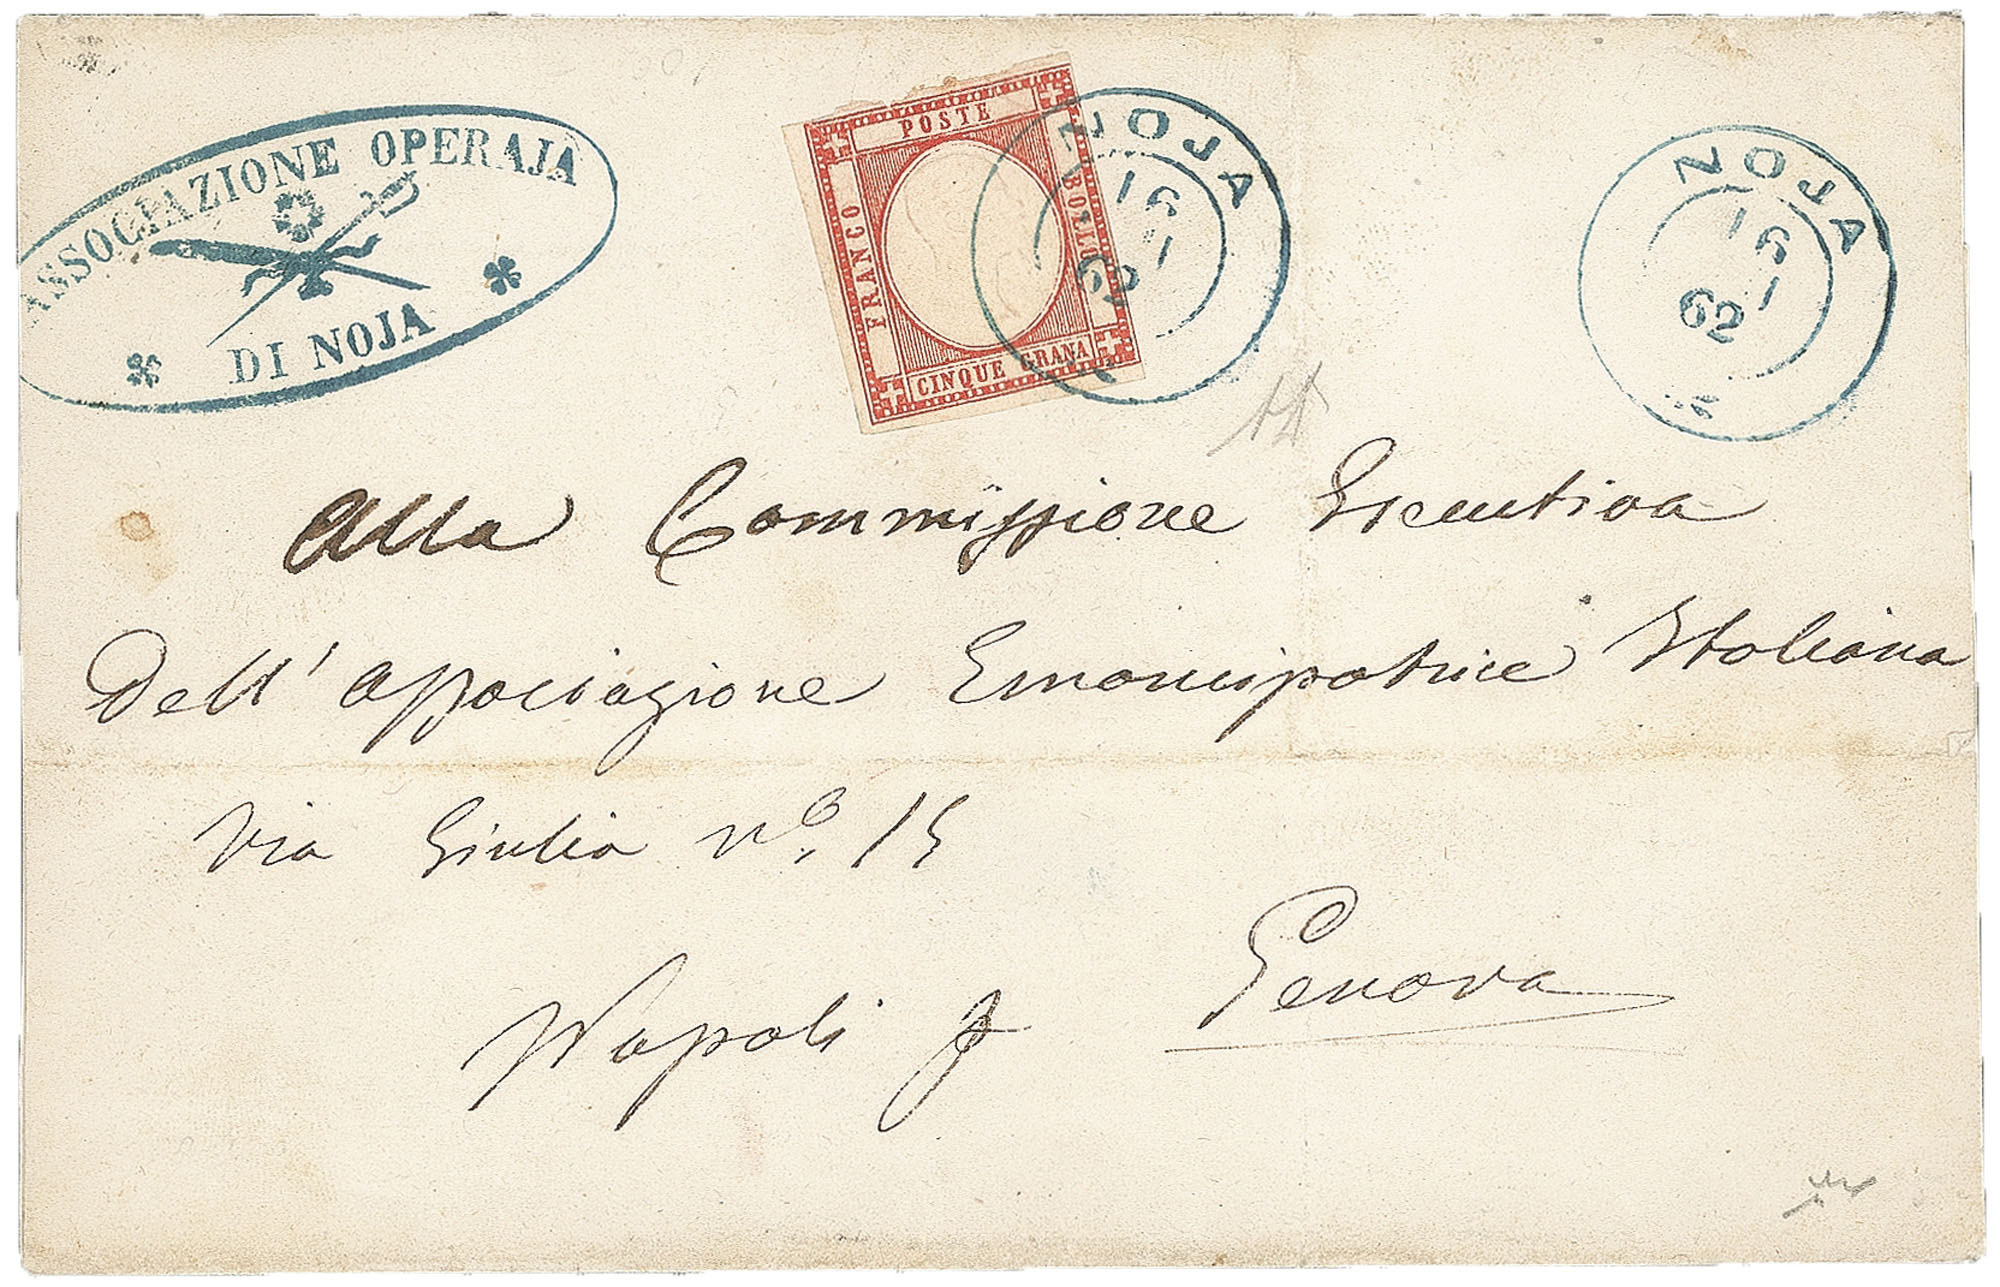 ASSOCIAZIONE OPERAJA
DI NOJA
POSTE
FRANCO
BOLLO
CINQUE GRANA
NOJA
16
1
62
NOJA
16
1
62
Alla Commissione Esecutiva
Dell' associazione Emancipatrice Italiana
Via Giulia n.º 15
Napoli p Genova